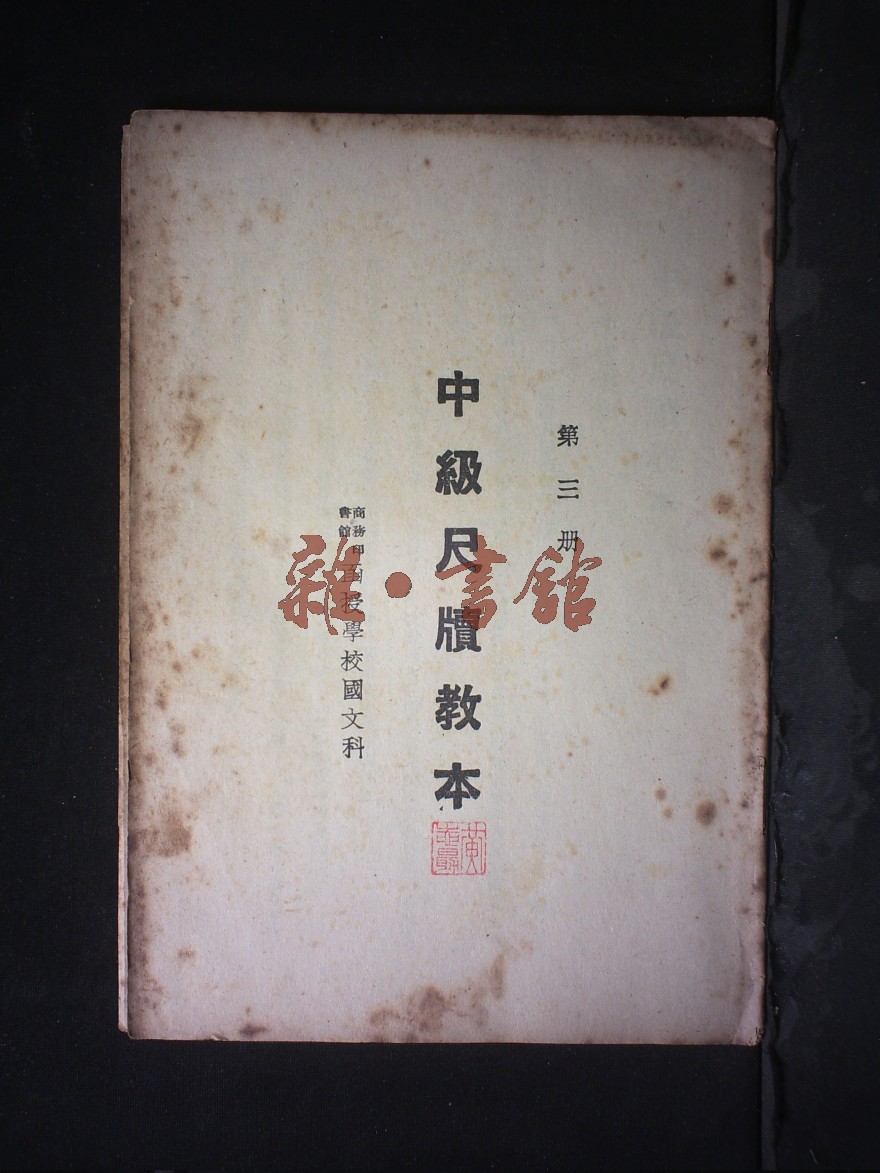 第三册
中級尺牘教本
商務印
書館
函授學校國文科
雜·書館